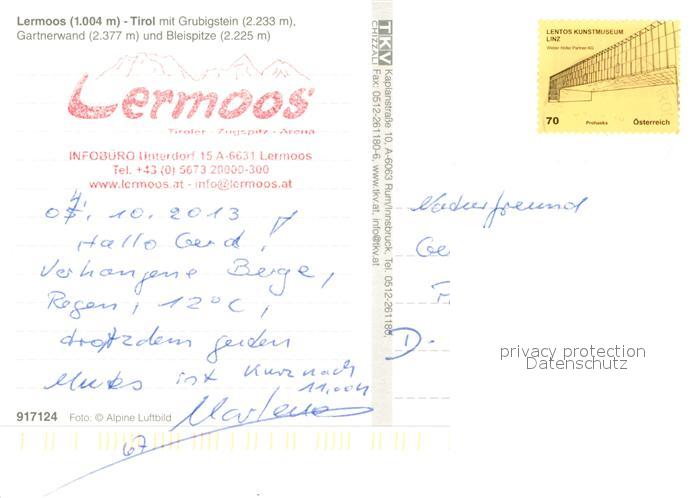 Lermoos (1.004 m) - Tirol mit Grubigstein (2.233 m),
Gartnerwand (2.377 m) und Bleispitze (2.225 m)
Lermoos
Tiroler - Zugspitz - Arena
INFOBÜRO Unterdorf 15 A-6631 Lermoos
Tel. +43 (0) 5673 20000-300
www.lermoos.at - info@lermoos.at
10. 2013
Hallo Gerd!
Verhangene Berge,
Regen, 12°C,
trotzdem guten
Mutes ist kurz nach
11.00h
Marlene
67
917124 Foto: © Alpine Luftbild
TKV
CHIZZALI
Kaplanstraße 10, A-6063 Rum/Innsbruck, Tel. 0512-261180,
Fax: 0512-261180-6, www.tkv.at, info@tkv.at
LENTOS KUNSTMUSEUM
LINZ
Weber Hofer Partner AG
70 Prohaska Österreich
Naturfreund
Ge
D.
privacy protection
Datenschutz